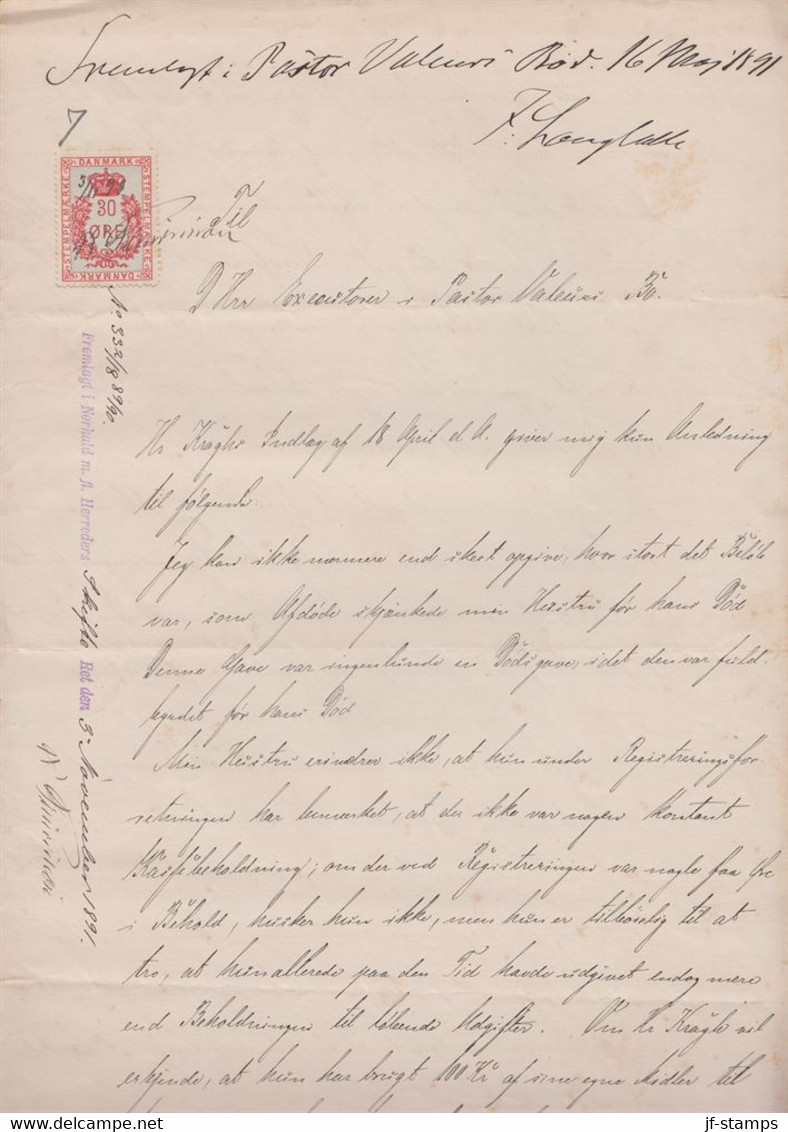 Fremlagt i Pastor Valeurs Bod. 16 Maj 1891
7
DANMARK
STEMPELMÆRKE
STEMPELMÆRKE
30
ØRE
DANMARK
Til
D Hrr Executorer i Pastor Valeurs Bo.
No 332/18 89/90.
Fremlagt i Nørhald m. fl. Herreders Skifte Ret den 3' November 1891.
Hr Kraghs Indlæg af 18 April d. A. giver mig kun Anledning
til følgende:
Jeg kan ikke nærmere end sket opgive, hvor stort det Beløb
var, som Afdøde skjænkede min Hustru før hans Død
Denne Gave var ingenlunde en Dødsgave, idet den var fuld-
byrdet før hans Død
Min Hustru erindrer ikke, at hun under Registreringsfor-
retningen har bemærket, at der ikke var nogen kontant
Kassebeholdning; om der ved Registreringen var nogle faa Øre
i Behold, husker hun ikke, men hun er tilbøielig til at
tro, at hun allerede paa den Tid havde udgivet endog mere
end Beholdningen til løbende Udgifter. Om Hr Kragh vil
erkjende, at hun har brugt 100 Kr af sine egne Midler til
jf-stamps